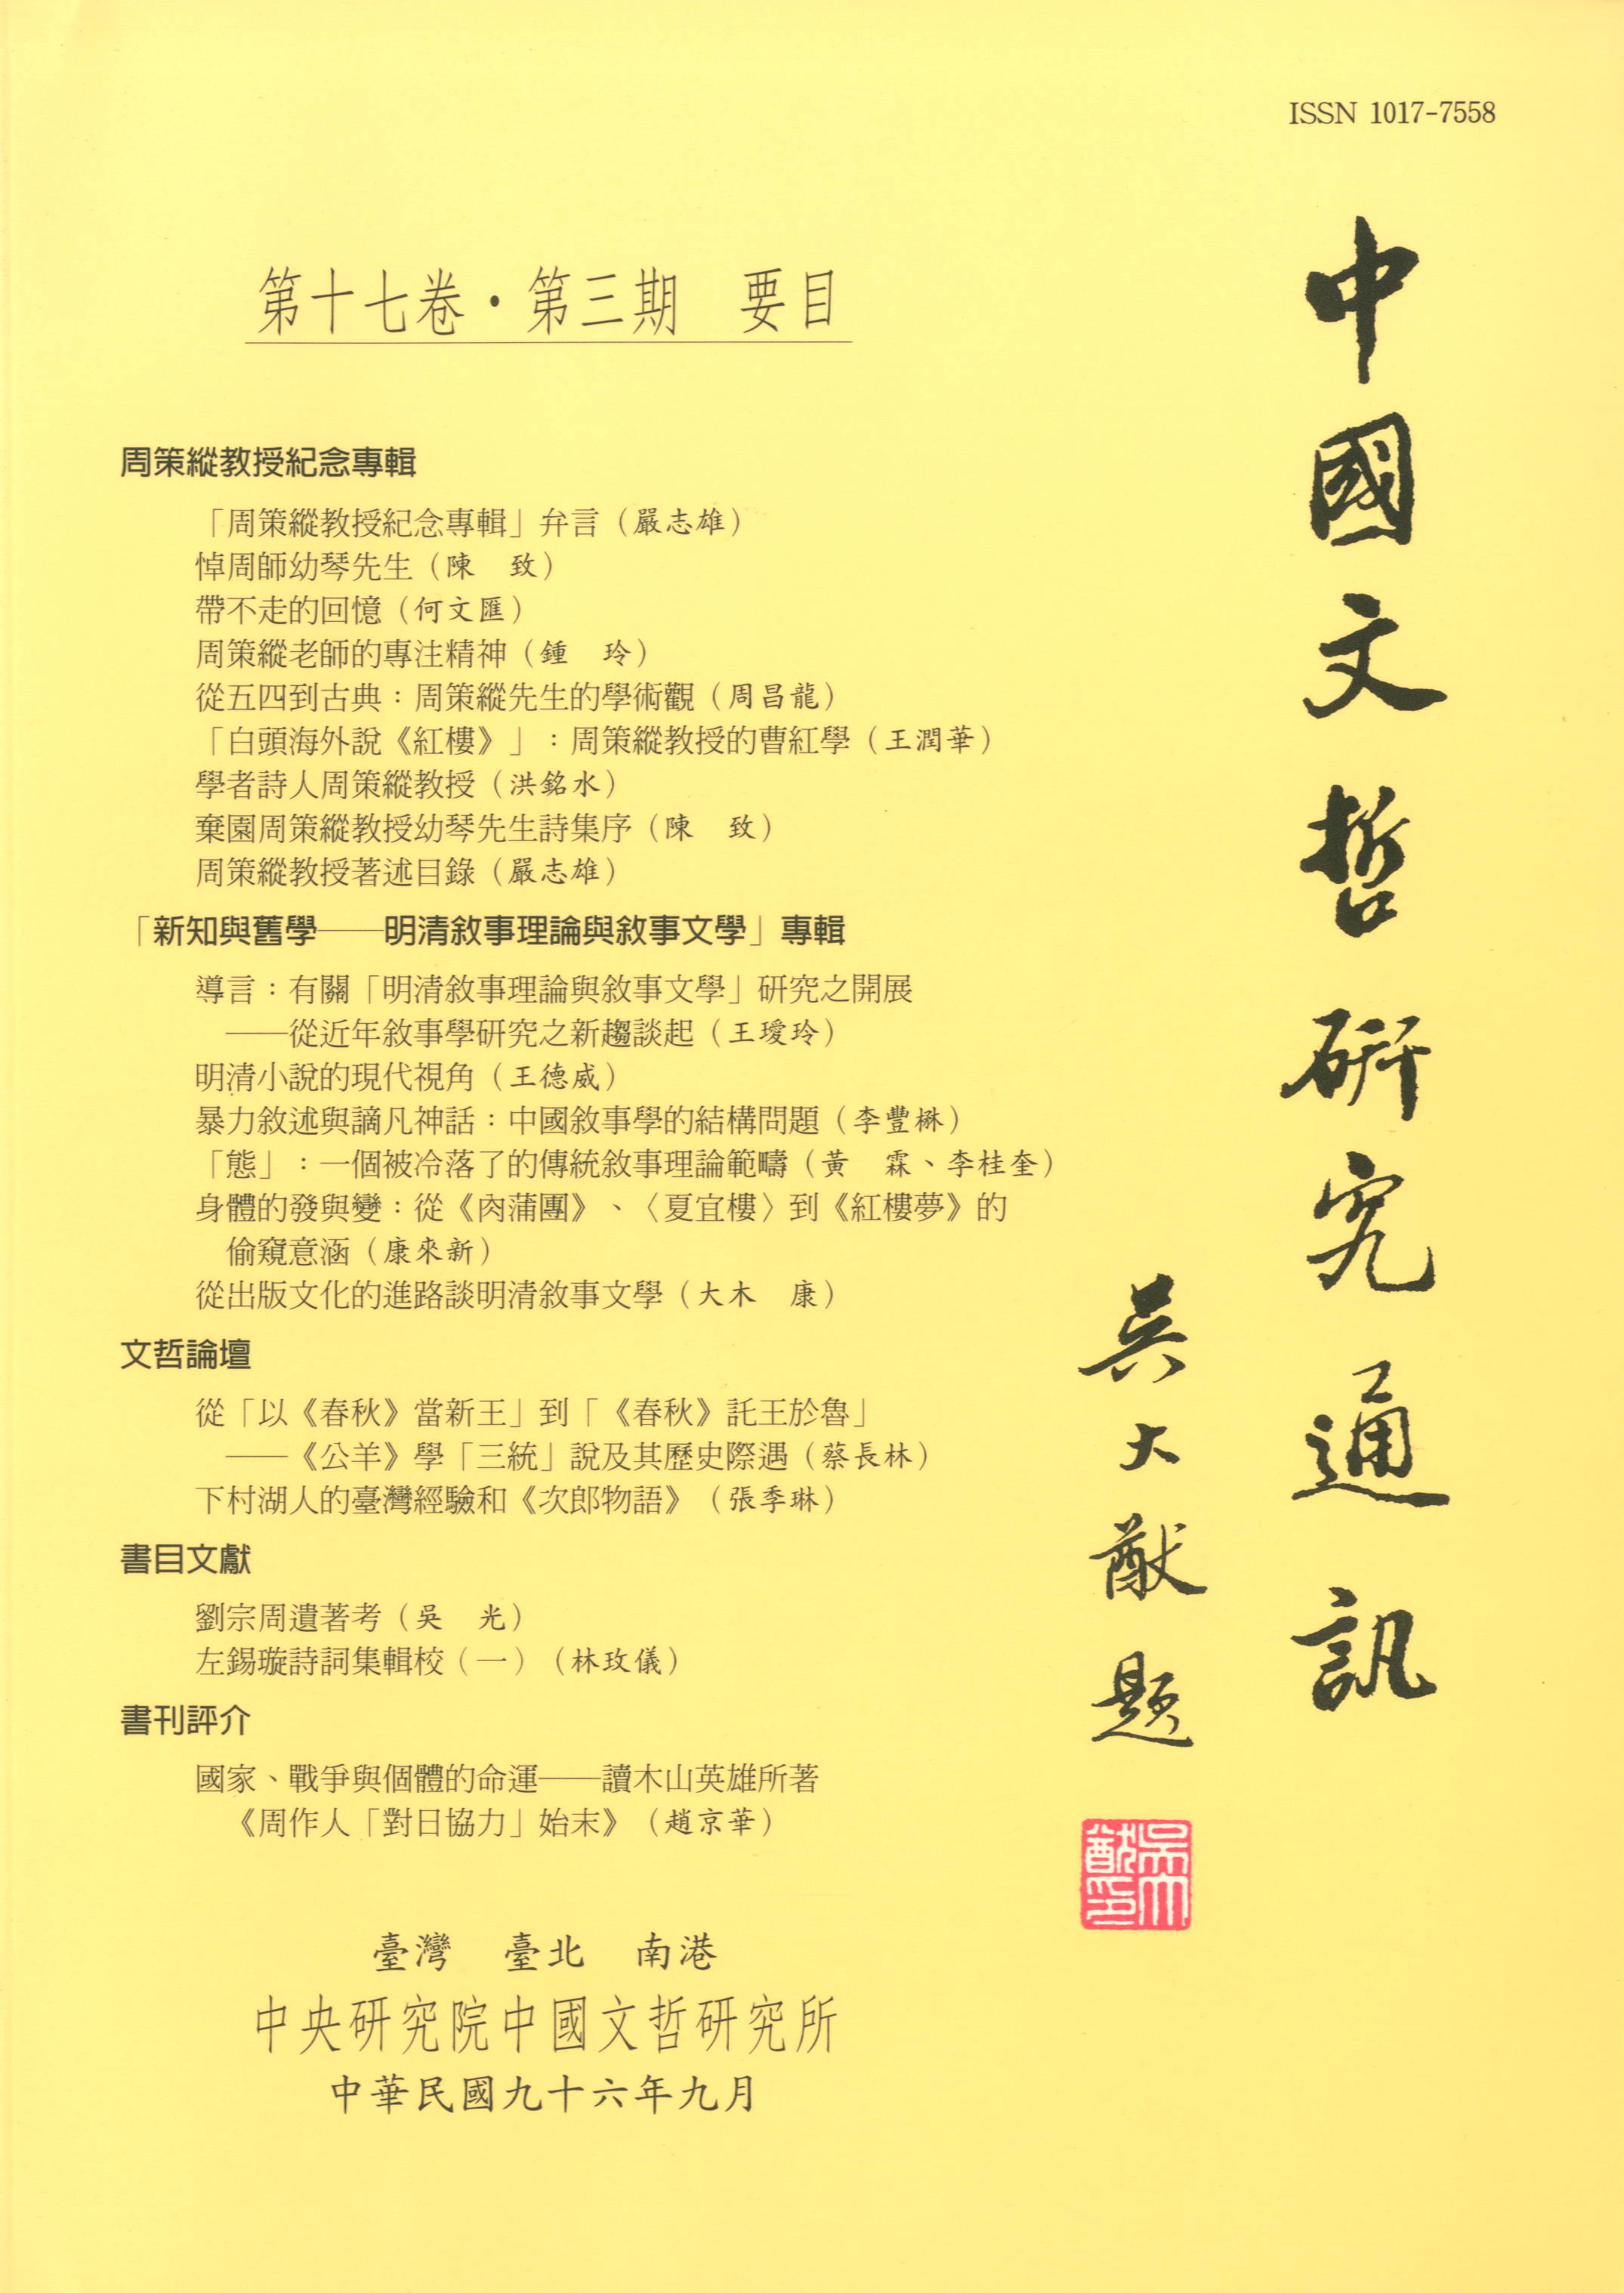 ISSN 1017-7558
中國文哲研究通訊
吳大猷題
吳大猷印
第十七卷・第三期　要目
周策縱教授紀念專輯
「周策縱教授紀念專輯」弁言（嚴志雄）
悼周師幼琴先生（陳　致）
帶不走的回憶（何文匯）
周策縱老師的專注精神（鍾　玲）
從五四到古典：周策縱先生的學術觀（周昌龍）
「白頭海外說《紅樓》」：周策縱教授的曹紅學（王潤華）
學者詩人周策縱教授（洪銘水）
棄園周策縱教授幼琴先生詩集序（陳　致）
周策縱教授著述目錄（嚴志雄）
「新知與舊學——明清敘事理論與敘事文學」專輯
導言：有關「明清敘事理論與敘事文學」研究之開展
——從近年敘事學研究之新趨談起（王璦玲）
明清小說的現代視角（王德威）
暴力敘述與謫凡神話：中國敘事學的結構問題（李豐楙）
「態」：一個被冷落了的傳統敘事理論範疇（黃　霖、李桂奎）
身體的發與變：從《肉蒲團》、〈夏宜樓〉到《紅樓夢》的
偷窺意涵（康來新）
從出版文化的進路談明清敘事文學（大木　康）
文哲論壇
從「以《春秋》當新王」到「《春秋》託王於魯」
——《公羊》學「三統」說及其歷史際遇（蔡長林）
下村湖人的臺灣經驗和《次郎物語》（張季琳）
書目文獻
劉宗周遺著考（吳　光）
左錫璇詩詞集輯校（一）（林玫儀）
書刊評介
國家、戰爭與個體的命運——讀木山英雄所著
《周作人「對日協力」始末》（趙京華）
臺灣　臺北　南港
中央研究院中國文哲研究所
中華民國九十六年九月